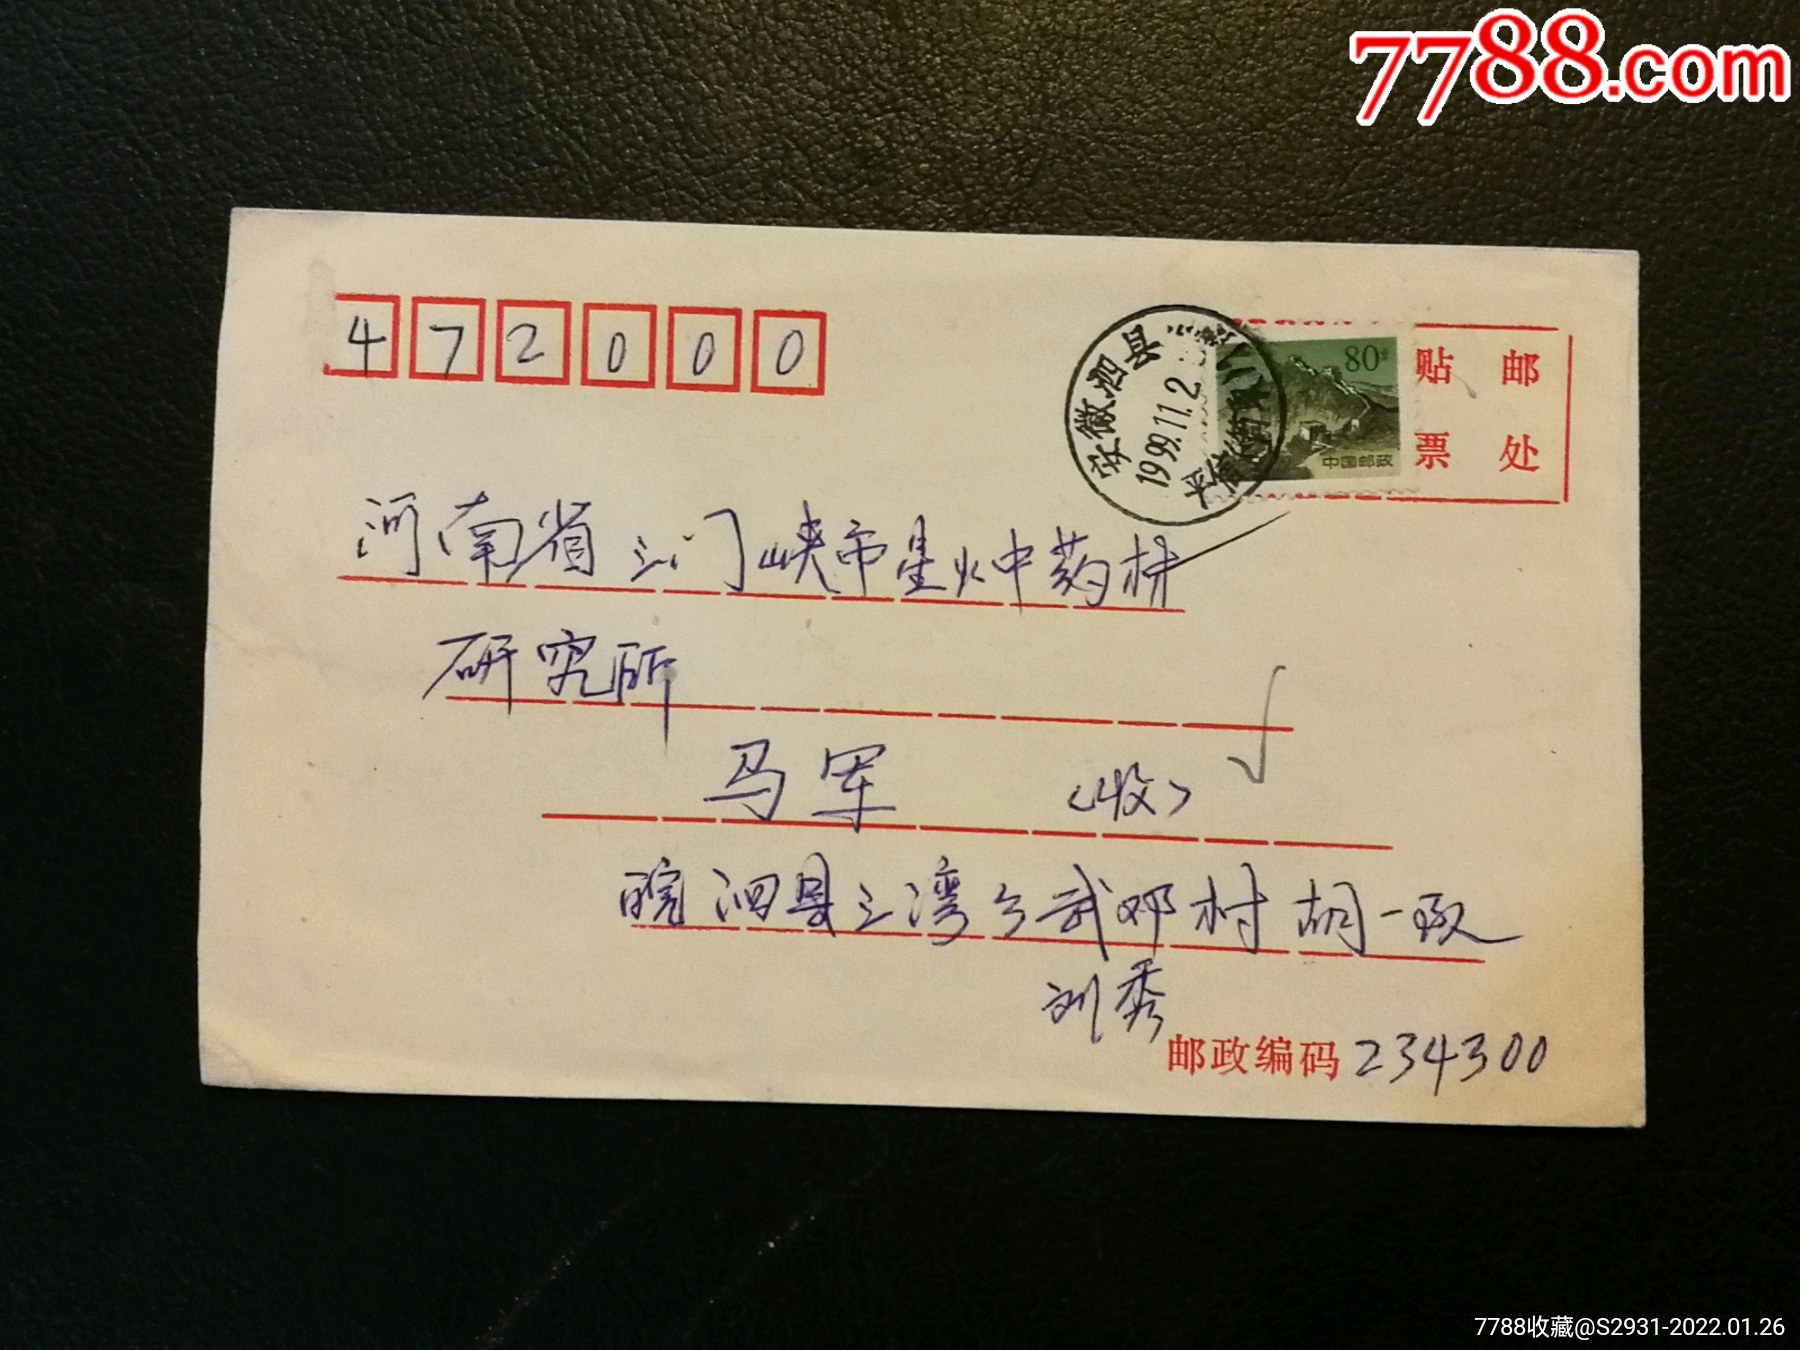 7788.com
472000
安徽泗县
1999.11.2
80分
中国邮政
贴 邮
票 处
河南省三门峡市星火中药材
研究所
马军 (收)
皖泗县三湾乡武邓村胡一
刘秀
邮政编码 234300
7788收藏@S2931-2022.01.26